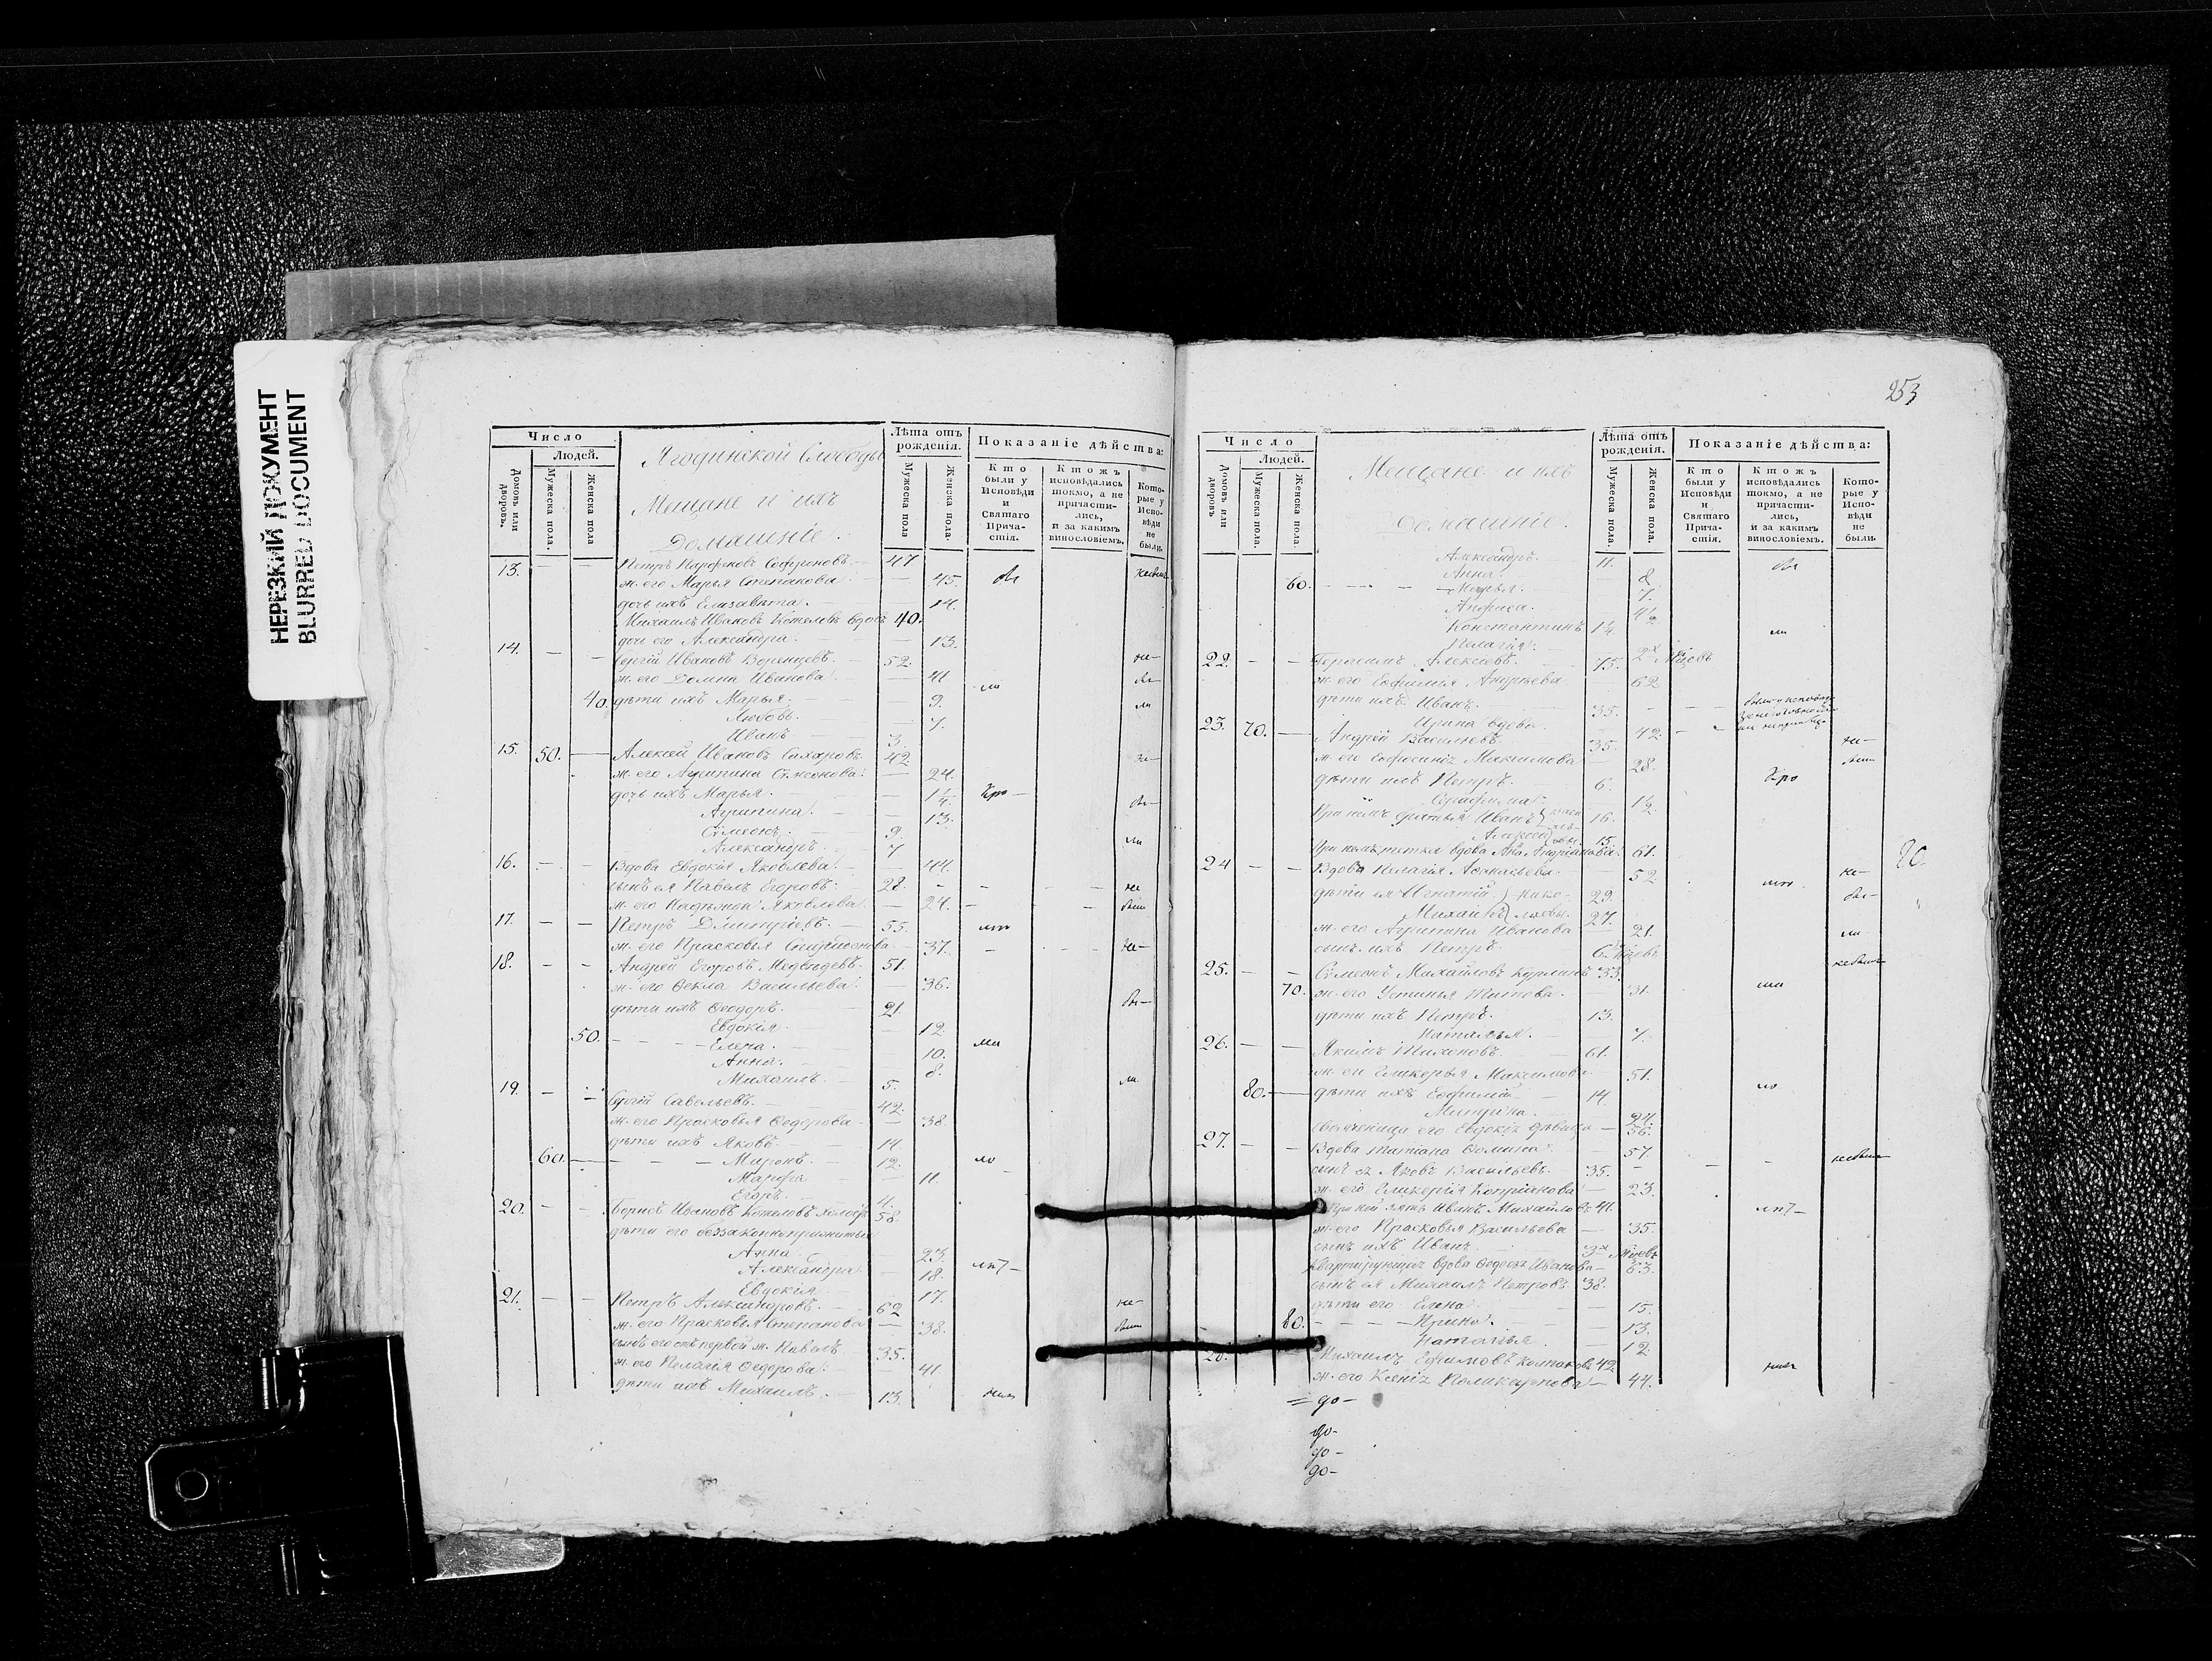 НЕРЕЗКИЙ ДОКУМЕНТ
BLURRED DOCUMENT
Число
Людей.
Домовъ или дворовъ.
Мужеска пола.
Женска пола
Ягодинской Слободы
Мещане и ихъ
Домашніе.
Лѣта отъ рожденія.
Мужеска пола
Женска пола.
Показаніе дѣйства:
Кто были у Исповѣди и Святаго Прича-стія.
Ктожъ исповѣдались токмо, а не причасти-лись, и за какимъ винословіемъ.
Кото-рые у Испо-вѣди не были.
13. — — Петръ Парфеновъ Софроновъ — 47
ж. его Марья Степанова — 45
дочь ихъ Елизавета. — 14.
Михаилъ Ивановъ Котеловъ вдовъ 40.
дочь его Александра. — 13.
14. — — Сергій Ивановъ Воренцевъ. — 52.
ж. его Домна Иванова. — 41
40. дѣти ихъ Марья. — 9.
Любовь. — 7.
Иванъ — 3.
15. 50. — Алексей Ивановъ Сахаровъ. 42
ж. его Агрипина Симеонова. — 24.
дочь ихъ Марья. — 1 1/4.
Агрипина. — 13.
Симеонъ. — 9.
Александръ. — 7
16. — — Вдова Евдокія Яковлева. — 44.
сынъ ея Павелъ Егоровъ. 28.
ж. его Надежда Яковлева. — 24.
17. — — Петръ Дмитріевъ. — 55.
ж. его Прасковья Спиридонова — 37.
18. — — Андрей Егоровъ Медведевъ. 51.
ж. его Фекла Васильева. — 36.
дѣти ихъ Феодоръ. — 21.
Евдокія. — 12.
50. — Елена. — 10.
Анна. — 8.
Михаилъ. — 5.
19. — — Сергій Савельевъ. — 42.
ж. его Прасковья Федорова — 38.
дѣти ихъ Яковъ. — 14
60. — Миронъ. — 12.
Марфа — 11.
Егоръ. — 4.
20. — — Борисъ Ивановъ Котеловъ холостъ 58.
дѣти его беззаконноприжитыя
Анна. — 23.
Александра — 18.
Евдокія — 17.
21. — — Петръ Александровъ. — 62
ж. его Прасковья Степанова — 38.
сынъ его отъ первой ж. Павелъ 35.
ж. его Пелагія Федорова. — 41.
дѣти ихъ Михаилъ. — 13.
253
Число
Людей.
Домовъ или дворовъ
Мужеска пола.
Женска пола.
Мещане и ихъ
домашніе.
Лѣта отъ рожденія.
Мужеска пола.
Женска пола.
Показаніе дѣйства:
Кто были у Исповѣди и Святаго Прича-стія.
Ктожъ исповѣдались токмо, а не причасти-лись, и за какимъ винословіемъ.
Кото-рые у Испо-вѣди не были.
Александръ. — 11.
Анна. — 8
60. — Марья. — 7.
Анфиса. — 4 1/2
Константинъ 1 1/4.
Пелагія. — 2х Мцовъ
22. — — Герасимъ Алексѣевъ. — 75.
ж. его Евфимія Андрѣева 62
дѣти ихъ Иванъ. — 35.
Ирина вдова. — 42.
23. 70. — Андрей Васильевъ. 35.
ж. его Евфросинія Максимова — 28.
дѣти ихъ Петръ. 6.
Серафима — 1 1/2.
При немъ братья Иванъ 16.
Алексей 15.
При немъ тетка вдова Анна Андріянова. 61.
24 — — Вдова Пелагія Афанасьева. — 52
дѣти ея Игнатій Нико- 29.
Михаилъ лаевы. 27.
ж. его Агрипина Иванова — 21.
сынъ ихъ Петръ 6. Мцовъ
25. — — Симеонъ Михайловъ Курлинъ 33.
70. ж. его Устинья Титова. — 31.
дѣти ихъ Петръ. 13.
Наталья. — 7.
26. — — Якимъ Тихоновъ. — 61.
ж. его Гликерья Максимова — 51.
80. — дѣти ихъ Евфимій — 14
Матрена. — 24.
Свояченица его Евдокія дѣвица — 56.
27. — — Вдова Татіана Фомина — 57
сынъ ея Яковъ Васильевъ. — 35.
ж. его Гликерія Копріянова — 23.
При ней зять Иванъ Михайловъ 41.
ж. его Прасковья Васильева — 35.
сынъ ихъ Иванъ 3х Мцовъ
Квартирующая вдова Федосья Иванова — 63.
сынъ ея Михаилъ Петровъ 38.
дѣти его Елена — 15.
80. — Ирина. — 13.
Наталья — 12
28. Михаилъ Ефимовъ Колпаковъ 42
ж. его Ксенія Поликарпова — 44.
= до —
до —
до —
до —